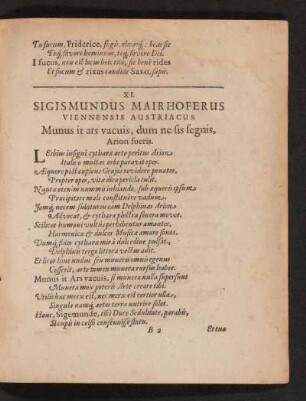 To fucum, Friderice,
I fucus, non est
Et fucum & rixas candide Saxo, fugis.
XI.
SIGISMUNDUS MAIRHOFERUS
VIENNENSIS AUSTRIACUS.
Munus it ars vacuis, dum ne sis segnis,
Arion fueris.
LEsbius insigni cythara arte peritus Arion
Italico multas orbe paravit opes.
Æquore pòst cupiens Grajos revidere penates,
Propter opes, vitæ dira pericla tulit.
Nauta etenim nummis inhiando, sub æquora ipsum
Præcipitare mali constituere vadum.
Jamq́; necem subiturus eum Delphinas Arion
Advocat, & cythara plectra sonora movet.
Scilicet humani vultûs perhibentur amantes,
Harmonicæ & dulces Musicæ amare sonos.
Dumq́; sitos cythara mirâ dulcedine pulsat,
Delphinis tergo littora vectus adit.
Et licet hinc nudus seu muneris omne genus
Cesserit, arte tamen munera rursus habet.
Munus it Ars vacuis, si munera nulla supersunt
Munera mox poteris Arte creare tibi.
Utilis huc mercis est, nec merces est tertior ulla,
Singula namq́; artes terra nutrire solet.
Hanc, Sigemunde, tibi Duce Sedulitate, parabis,
Sicupis in celso consenuisse statu.
B 2
Et tua